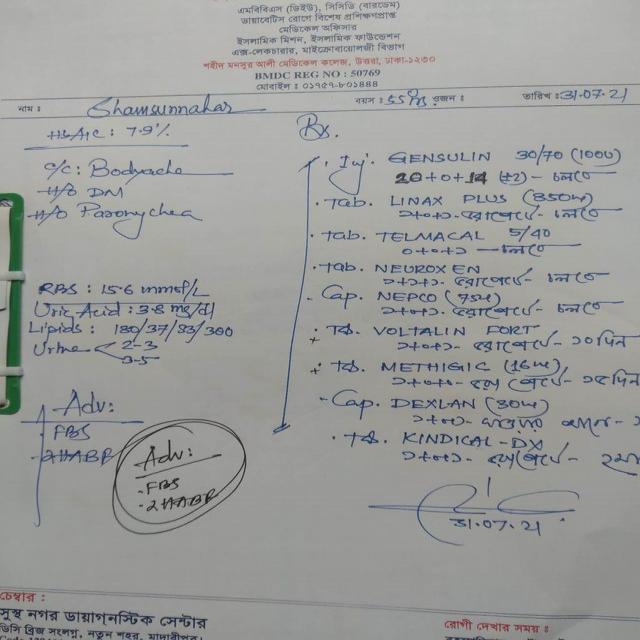 এমবিবিএস (ডিইউ), সিসিডি (বারডেম)
ডায়াবেটিস রোগে বিশেষ প্রশিক্ষণপ্রাপ্ত
মেডিকেল অফিসার
ইসলামিক মিশন, ইসলামিক ফাউন্ডেশন
এক্স-লেকচারার, মাইক্রোবায়োলজী বিভাগ
শহীদ মনসুর আলী মেডিকেল কলেজ, উত্তরা, ঢাকা-১২৩০
BMDC REG NO : 50769
মোবাইল : ০১৭৫৭-৮০১৪৪৪
নাম : Shamsunnahar বয়স : 55 ওজন : তারিখ : 31.07.21
HbA1C : 7.9%
C/C : Bodyache
H/O DM
H/O Paronychea
RBS : 15.6 mmol/L
Uric Acid : 3.8 mg/dl
Lipids : 180/37/83/300
Urine 2-3
3-5
Adv :
FBS
2HABF
Adv :
FBS
2HABF
Rx.
Inj. GENSULIN 30/70 (100U)
20+0+14 (±2) - চলবে
Tab. LINAX PLUS (850mg)
১+০+১ - চলবে
Tab. TELMACAL 5/40
০+০+১ - চলবে
Tab. NEUROXEN
১+০+১ - চলবে
Cap. NEPCO (75mg)
১+০+১ - চলবে
Tab. VOLTALIN FORT
১+০+১ - ১০ দিন
Tab. METHIGIC (16mg)
- ১৫ দিন
Cap. DEXLAN (30mg)
১+০+১
Tab. KINDICAL-DX
১+০+১
31.07.21
চেম্বার :
সুস্থ নগর ডায়াগনস্টিক সেন্টার
ডিসি ব্রিজ সংলগ্ন, নতুন শহর, মাদারীপুর।
রোগী দেখার সময় :